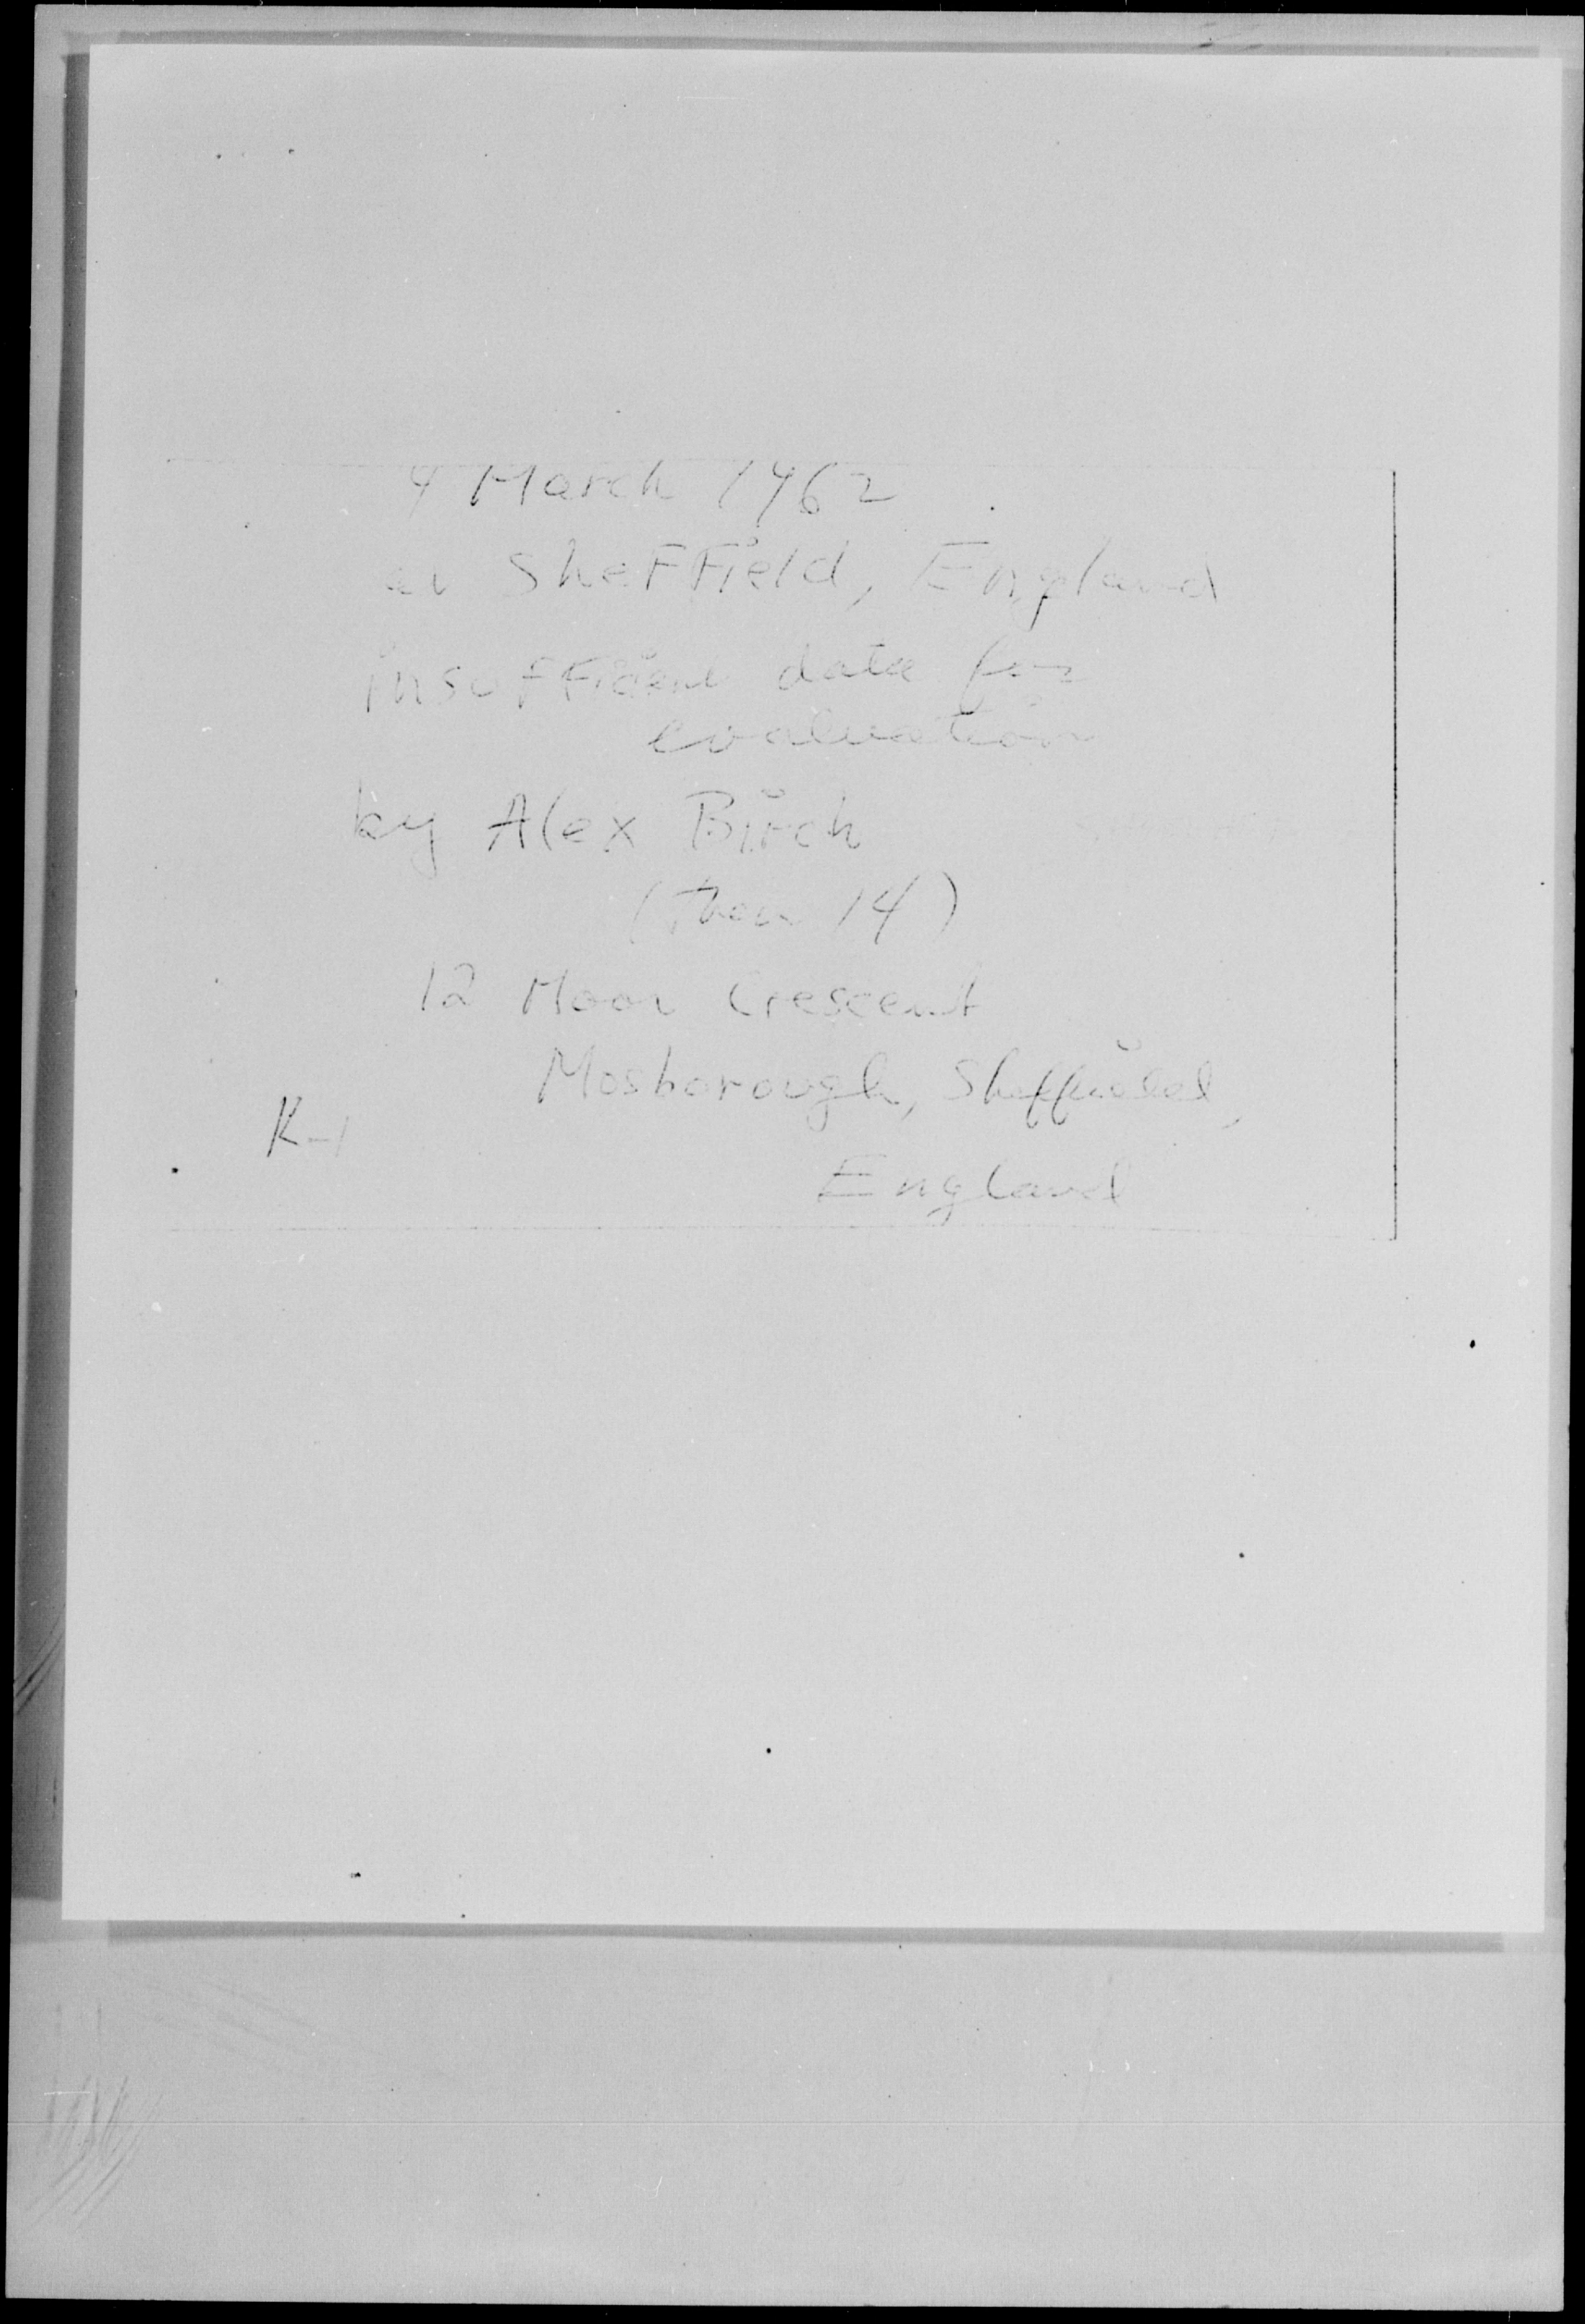 4 March 1962
Sheffield, England
insufficient data for
evaluation
by Alex Birch
(then 14)
12 Moor Crescent
Mosborough, Sheffield,
K-1
England